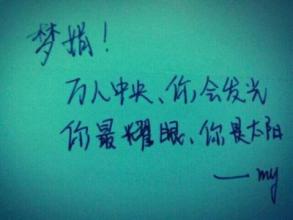 梦娟！
万人中央、你会发光
你最耀眼、你是太阳
—my